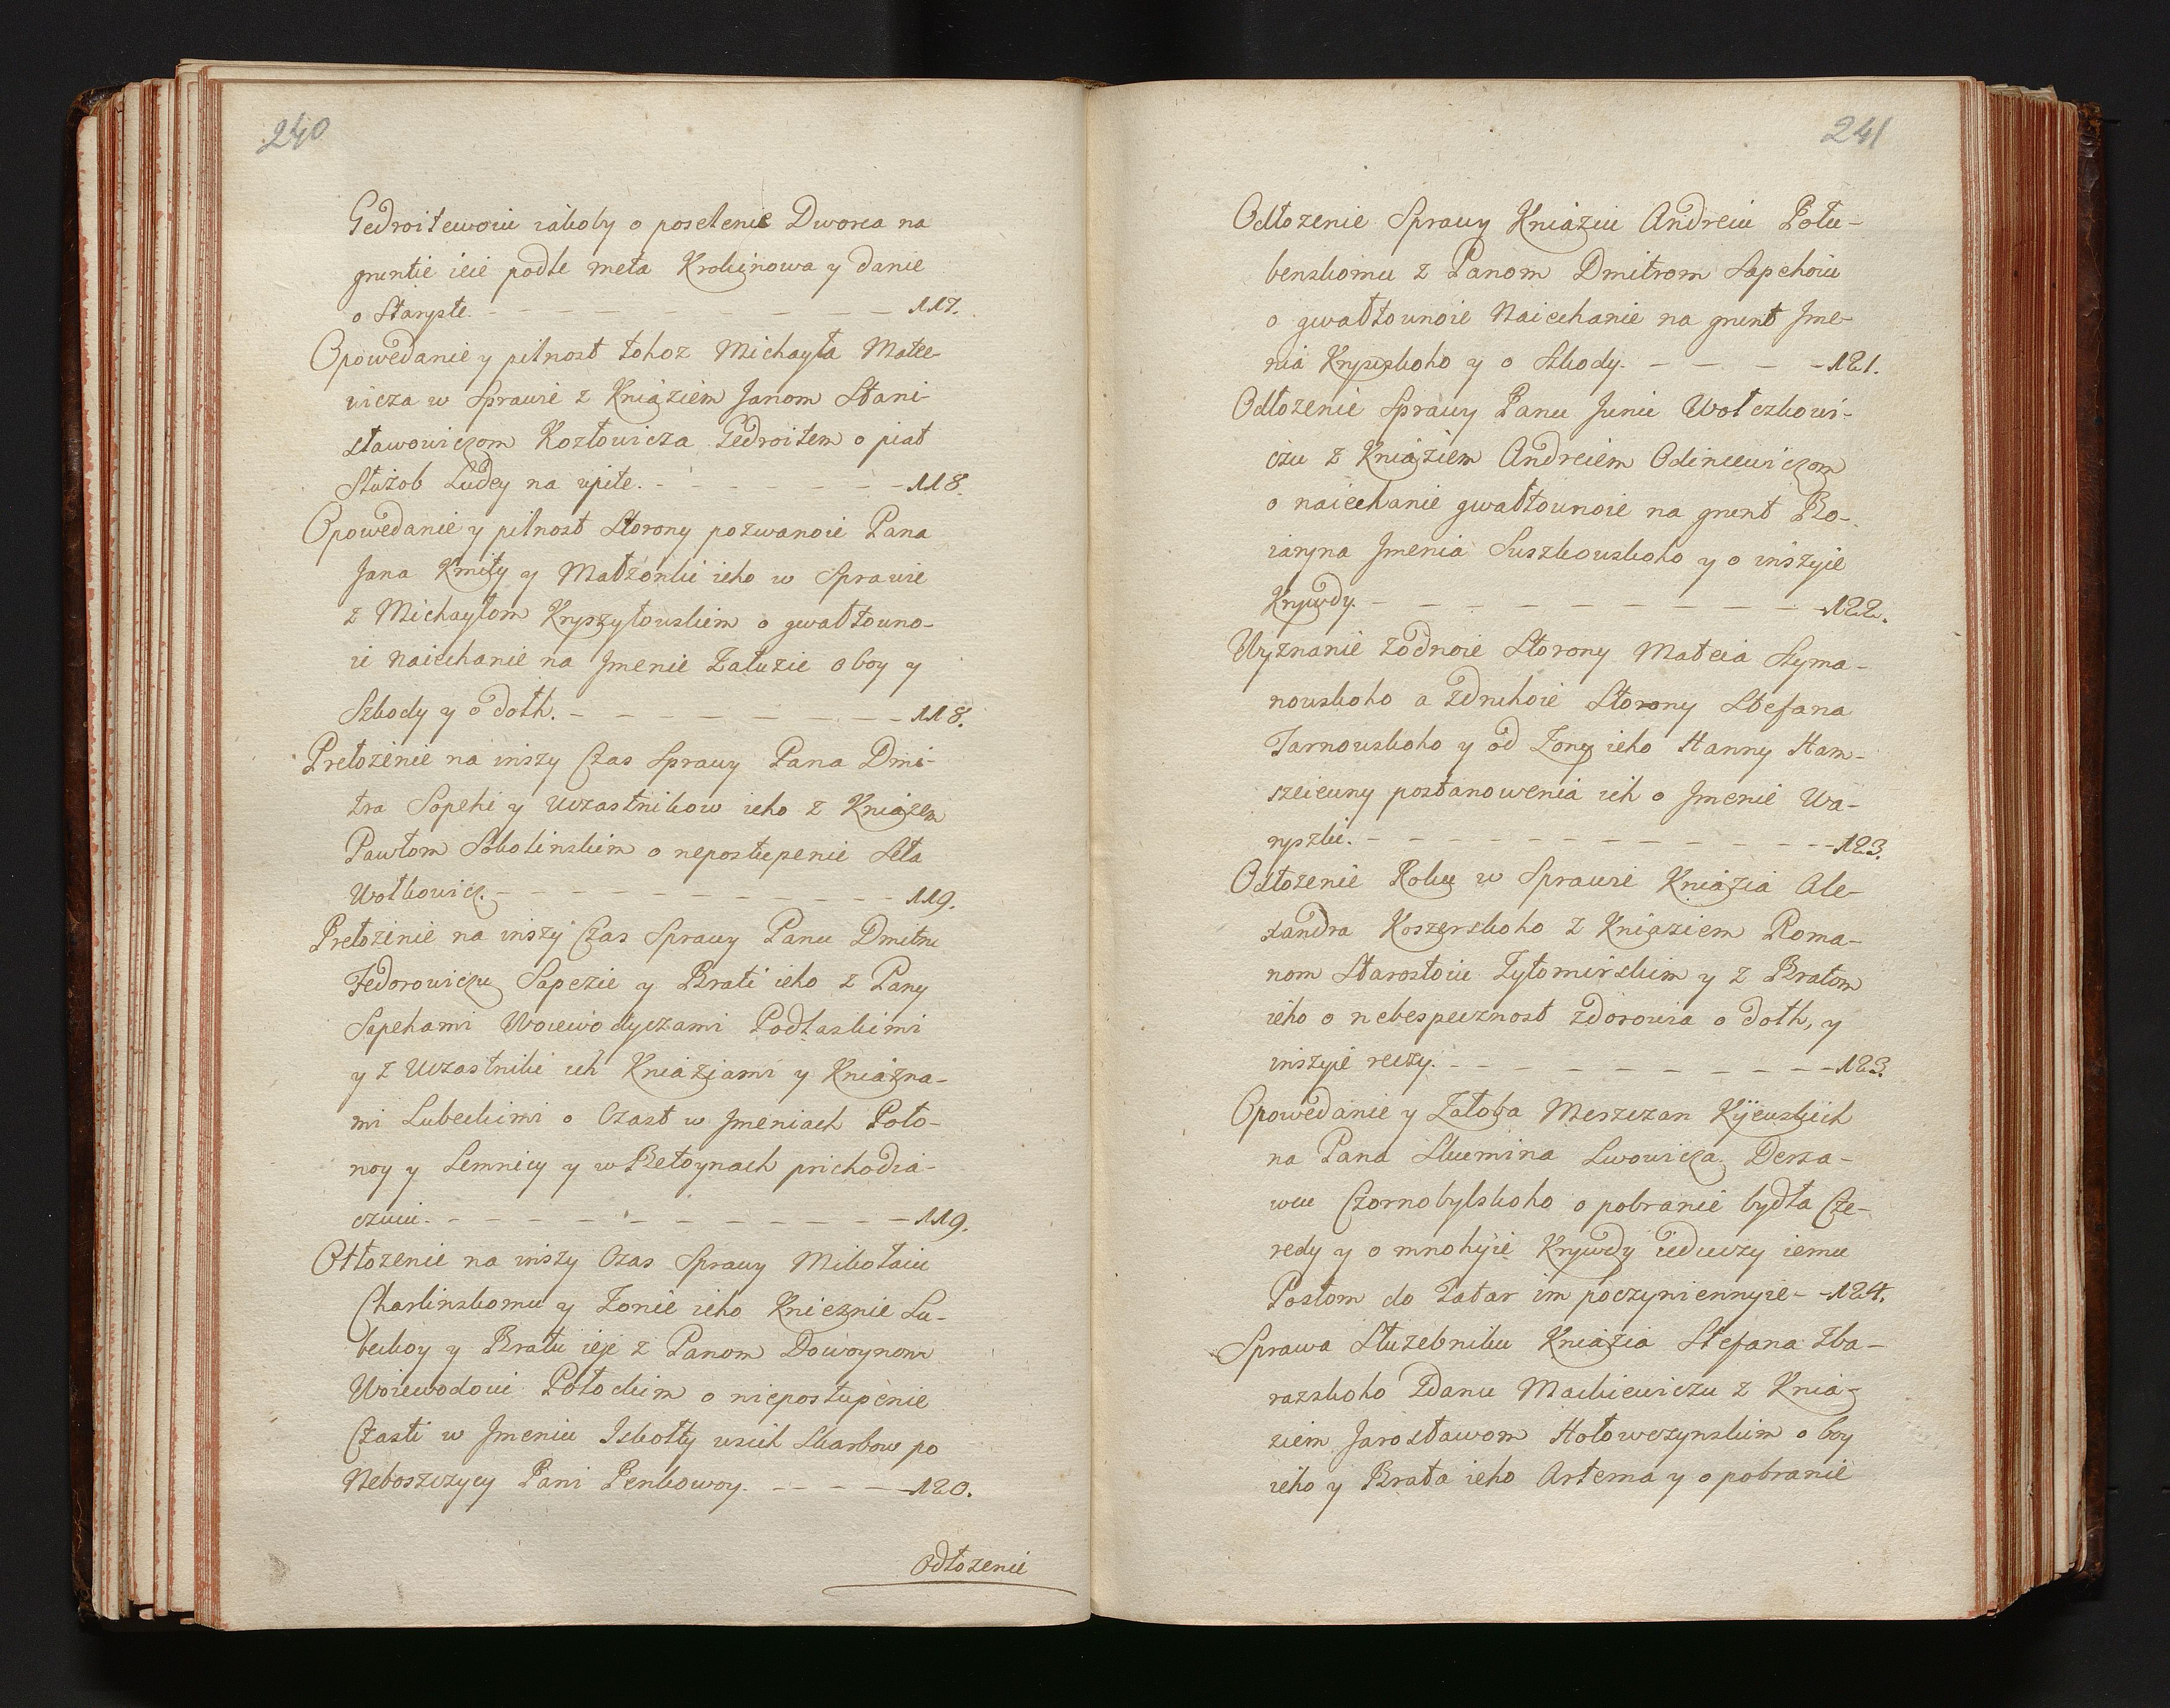 240
Gedroitewoiu iakoby o poselenie Dworca na
gruntie ieie podle mesta Krokinowa y danie
o Staryste. 117.
Opowedanie y pilnost tohoz Michayła Matee-
wicza w Sprawie z Kniaziem Janom Stani-
sławowiczom Kozłowicza Gedroitem o piat
Służob Ludey na upite. 118.
Opowedanie y pilnost Storony pozwanoie Pana
Jana Kmity y Małżonki ieho w Sprawie
z Michayłom Kryszyłouskim o gwałtouno-
ie naiechanie na Jmenie Załuzie o boy y
Szkody y o dołh. 118.
Prełożenie na inszy Czas Sprawy Pana Dmi-
tra Sopehi y Uczastnikow ieho z Kniazem
Pawłom Sokolinskim o nepostupenie Seła
Wołkowicz. 119.
Prełożenie na inszy Czas Sprawy Panu Dmitru
Fedorowiczu Sapezie y Brati ieho z Pany
Sapehami Woiewodyczami Podlaskimi
y z Uczastniki ich Kniaziami y Kniażna-
mi Lubeckimi o Czast w Jmeniach Poło-
noy y Semnicy y w Retoynach prichodia-
czuiu. 119.
Otłożenie na inszy Czas Sprawy Mikołaiu
Charlinskomu y Żonie ieho Kniężnie Lu-
beckoy y Bratu ieje z Panom Dowoynom
Woiewodoiu Połockim o niepostupenie
Czasti w Jmeniu Iskołty usich Skarbow po
Neboszczycy Pani Penkowoy. 120.
Odłożenie
241
Odłożenie Sprawy Kniaziu Andreiu Połu-
benskomu z Panom Dmitrom Sapehoiu
o gwałtounoie Naiechanie na grunt Jme-
nia Krypskoho y o Szkody. 121.
Odłożenie Sprawy Panu Juriu Wołczkowi-
czu z Kniaziem Andreiem Odincewiczom
o naiechanie gwałtounoie na grunt Bo-
iaryna Jmenia Suszkouskoho y o inszyie
Krywdy. 122.
Wyznanie zodnoie Storony Mateia Szyma-
nouskoho a zdruhoie Storony Stefana
Tarnouskoho y od Żony ieho Hanny Ham-
szeieuny postanowenia ich o Jmenie Wa-
ryszki. 123.
Odłożenie Roku w Sprawie Kniazia Ale-
xandra Koszerskoho z Kniaziem Roma-
nom Starostoiu Żytomirskim y z Bratom
ieho o nebespecznost zdorowia o dołh, y
inszyie reczy. 123.
Opowedanie y Żałoba Meszczan Kyieuskich
na Pana Skumina Lwowicza Derża-
wcu Czornobylskoho o pobranie bydła Cze-
redy y o mnohyie Krywdy ieduczy iemu
Posłom do Tatar im poczyniennyie 124.
Sprawa Służebniku Kniazia Stefana Zba-
razskoho Zdanu Mackiewiczu z Knia-
ziem Jarosławom Hołowczynskim o boy
ieho y Brata ieho Artema y o pobranie